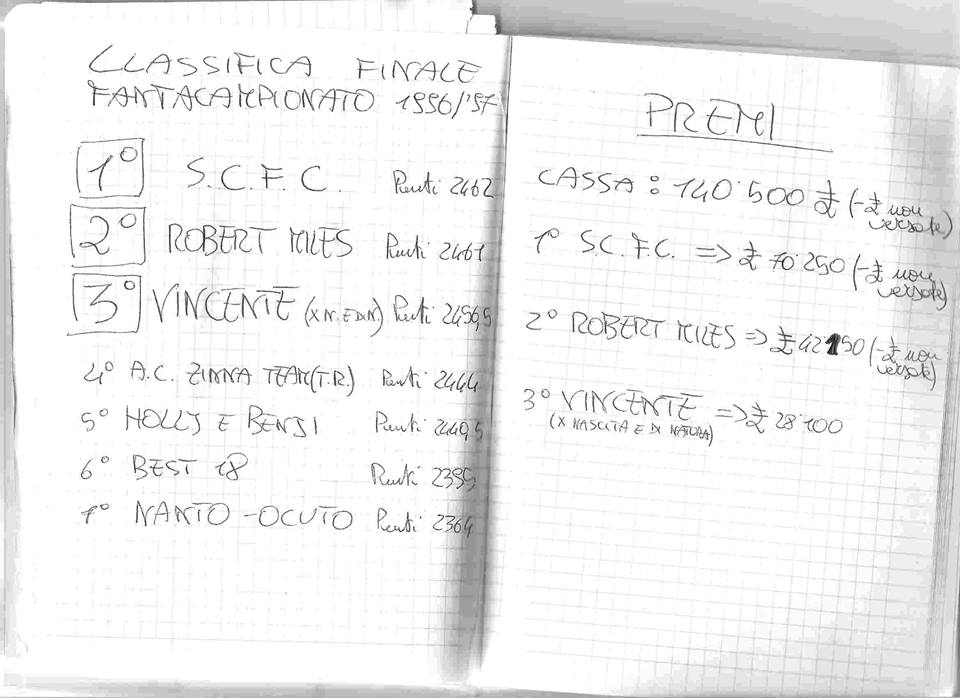 CLASSIFICA FINALE
FANTACAMPIONATO 1996/'97
1° S.C.F.C. Punti 2462
2° ROBERT MILES Punti 2461
3° VINCENTE (X N. E D N) Punti 2456,5
4° A.C. ZINNA TEAM (T.R.) Punti 2444
5° HOLLY E BENJI Punti 2440,5
6° BEST 18 Punti 2399
7° NANTO-OCUTO Punti 2364
PREMI
CASSA: 140.500 £ (-£ non versate)
1° S.C.F.C. => £ 70.250 (-£ non versate)
2° ROBERT MILES => £ 42150 (-£ non versate)
3° VINCENTE => £ 28.100
(X NASCITA E DI NATURA)